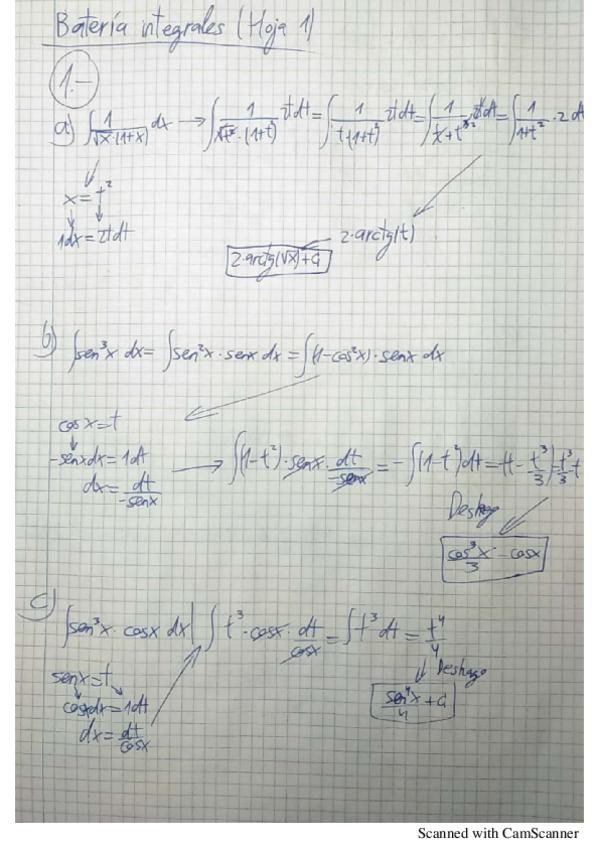 Batería integrales (Hoja 1)
1.-
a) ∫ 1/(√x·(1+x)) dx → ∫ 1/(√t²·(1+t²)) 2t dt = ∫ 1/(t·(1+t²)) 2t dt = ∫ 1/(t+t³) 2t dt = ∫ 1/(1+t²) · 2 dt
x = t²
1dx = 2t dt
2·arctg(t)
2·arctg(√x)+C
b) ∫sen³x dx = ∫sen²x · senx dx = ∫(1-cos²x)·senx dx
cosx = t
-senxdx = 1dt
dx = dt/-senx
→ ∫(1-t²)·senx· dt/-senx = -∫(1-t²)dt = -(t - t³/3) = t³/3 - t
Deshago
cos³x/3 - cosx
c) ∫sen³x · cosx dx | ∫t³·cosx· dt/cosx = ∫t³dt = t⁴/4
senx = t
cosxdx = 1dt
dx = dt/cosx
Deshago
sen⁴x/4 + C
Scanned with CamScanner